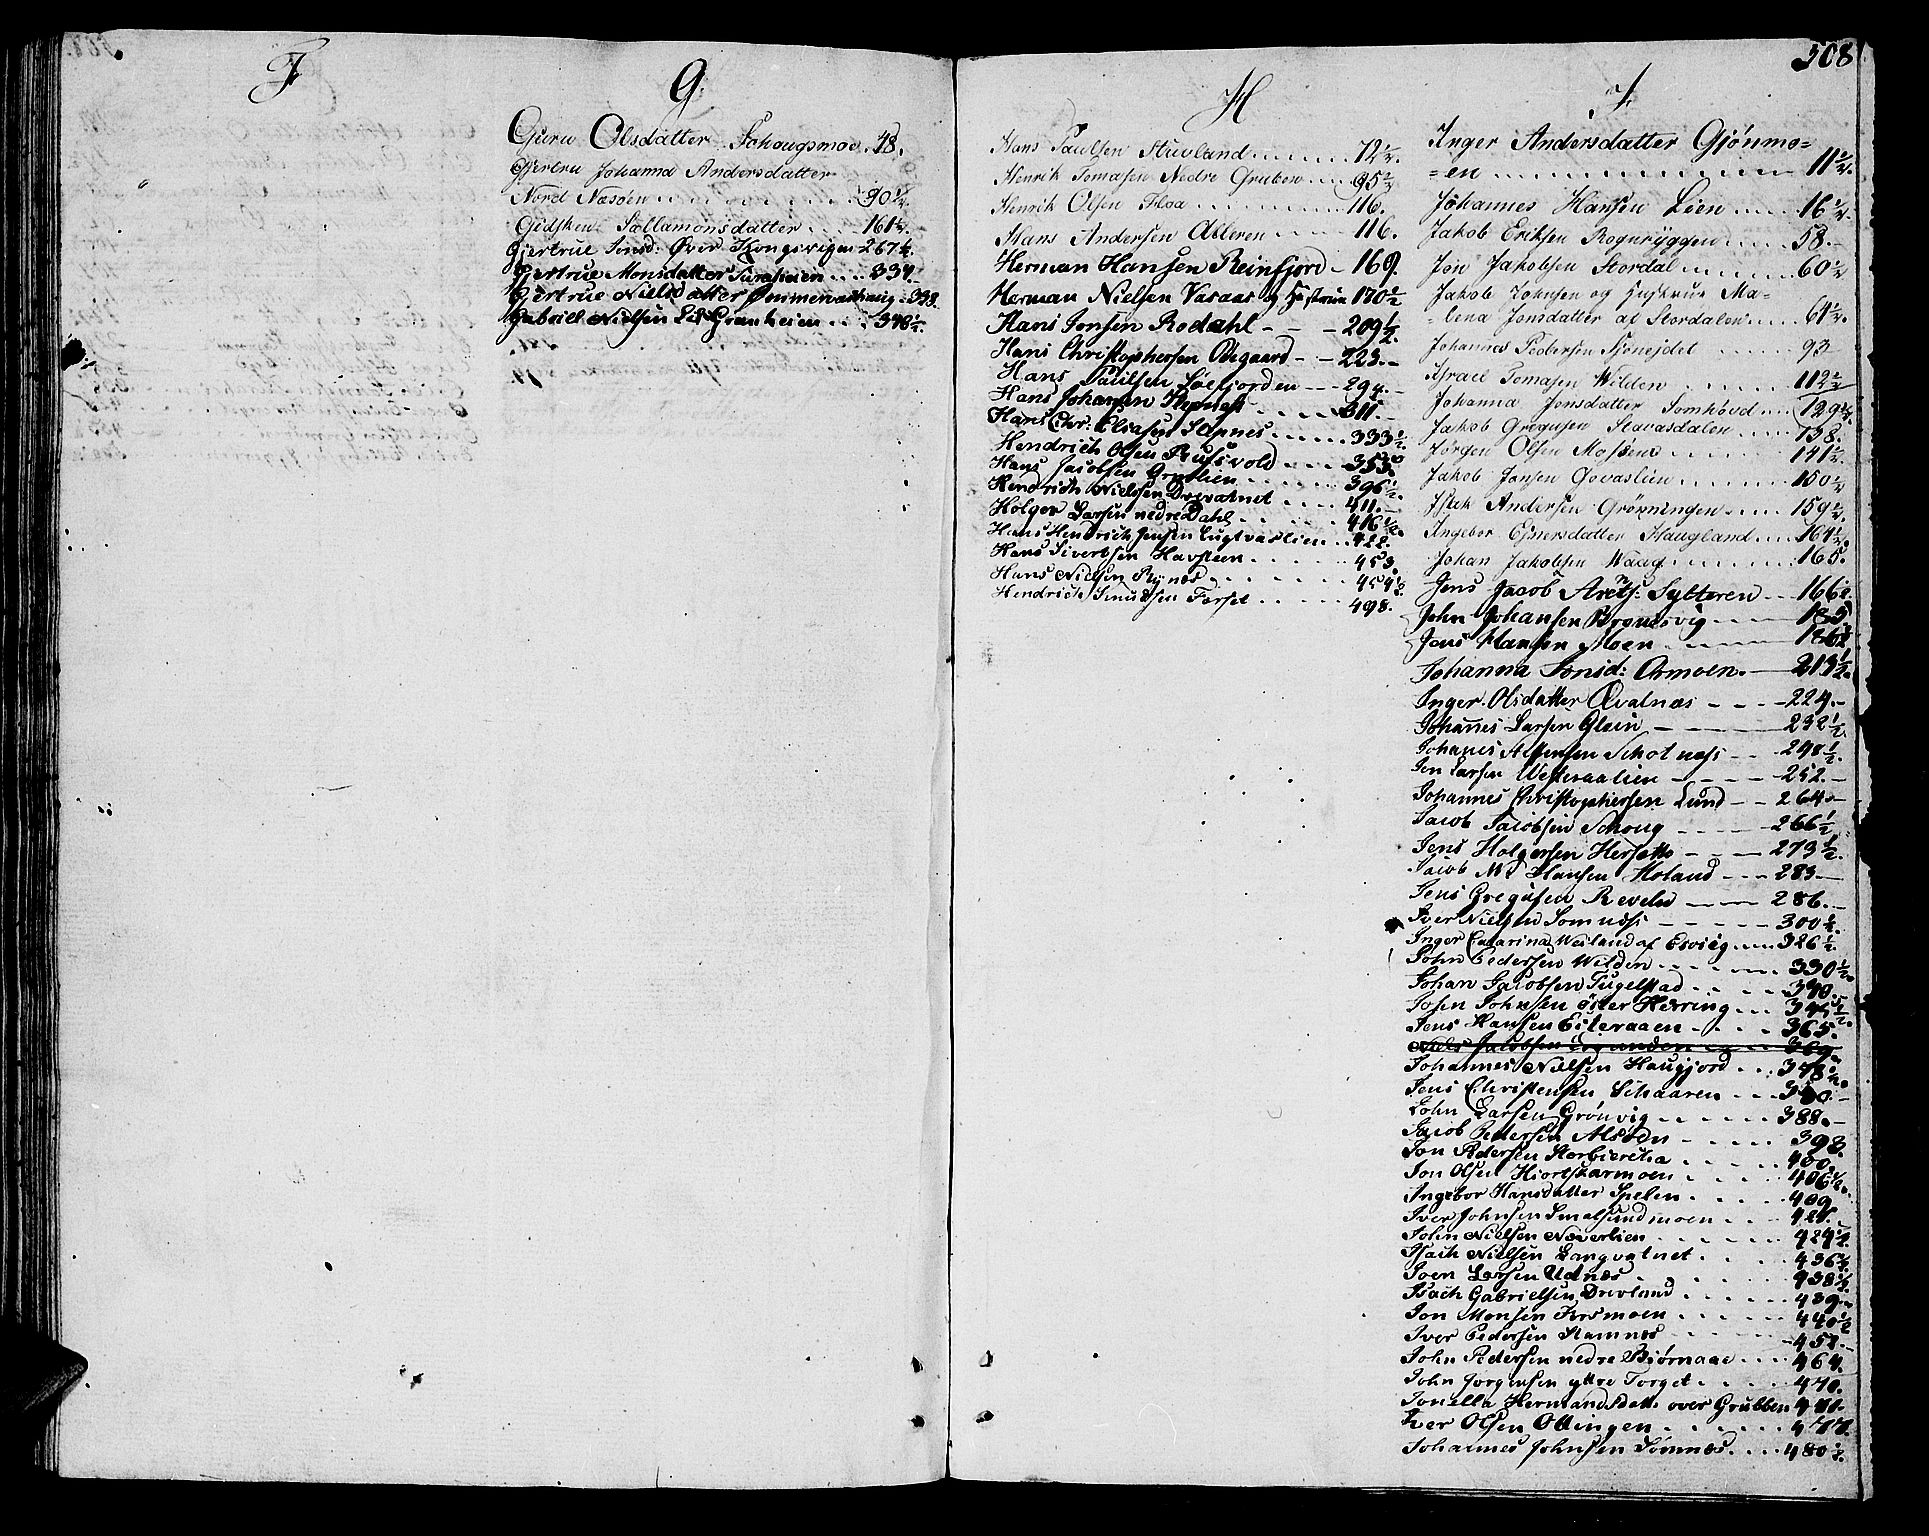 508
F
G
Guru Olsdatter Schougsmoe 48.
Gjertru Johanna Andersdatter
Nord Næsøen 90½
Gidsken Sallamonsdatter 161½
Gjertrue Jonsd: Øver Kongsvigen 267½
Gjertrue Monsdatter 334.
Gjertrue Nielsdatter 338.
Gabriel Nielsen Granheien 348½.
H
Hans Paulsen Stuvland 72½.
Henrik Tomasen Nedre Gruben 95½
Henrik Olsen Floa 116.
Hans Andersen Alteren 116.
Herman Hansen Reinfjord 169.
Herman Nielsen Vasaas og Hustrue 170½
Hans Jonsen Rodahl 209½.
Hans Christophersen Odegaard 223.
Hans Paulsen Løefjorden 294.
Hans Johansen 311.
Hans Chr: Eliasen 333½.
Hendrich Olsen Rusvold 353.
Hans Jacobsen Grønlien 396½.
Hendrich Nielsen Drevatnet 411.
Holger Larsen nedre Dahl 416½
Hans Hendrich Jensen Lugtvaslien 422.
Hans Sivertsen Havsteen 453.
Hans Nielsen Rynes 454½
Hendrich Knudsen Forset 498.
I
Inger Andersdatter Gjønmo=
=en 11½.
Johannes Hansen Lien 16½.
Jakob Eriksen Rognryggen 58.
Jon Jakobsen Stordal 60½
Jakob Johnsen og Hustrue Ma=
=lena Jonsdatter af Stordalen 61½.
Johannes Pedersen Sjonejdet 93
Israel Tomasen Wilden 112½
Johanna Jonsdatter Somhovd 129½
Jakob Gregusen Stavasdalen 138.
Jørgen Olsen Mosøen 141½.
Jakob Jonsen Govaslien 150½
Isak Andersen Grønningen 159½.
Ingebor Ejnersdatter Haugland 164½.
Johan Jakobsen Waag 165.
Jens Jacob Arets: Sytteren 166½
John Johansen Brønsvig 185
Jens Hansen Moen 186½
Johanna Jonsd: Ormoen 213½.
Inger Olsdatter Qvalnæs 224.
Johannes Larsen Glein 232½
Johanes Schotnæss 240½.
Jon Larsen Westeraalien 252.
Johannes Christophersen Lund 264.
Jacob Jacobsen Schoug 266½
Jens Holgersen Hersætte 273½.
Jacob Ms Hansen Holand 283.
Jens Gregusen Reveln 286.
Iver Nielsen Somnæss 300½.
Inger Catarina Weiland af Esvieg 326½
John Pedersen Wilden 330½
Johan Jacobsen Tugelstad 340.
Josen Johnsen øster Herring 345½.
Jens Hansen Eiteraaen 365.
Niels Jacobsen 369
Johannes Nielsen Haugjord 378½
Jens Christensen Schaaren 380.
John Larsen Grønvig 388.
Jacob Pedersen Alsøen 398.
Jon Pedersen Storbiercka 400.
Jon Olsen Hiortskarmoen 406½.
Ingebor Hansdatter Spelen 409
Iver Johnsen Smalsundmoen 421.
John Nielsen Næverlien 424½.
Isach Nielsen Langvatnet 436½.
Joen Larsen Udnæs 938½
Isach Gabrielsen Drevland 439.
Jon Monsen Forsmoen 440½
Iver Pedersen Stamnes 452.
John Pedersen nedre Biørnaae 464.
John Jørgensen yttre Torget 470.
Jonella Hermandsdatt: over Grubben 471.
Iver Olsen Ottingen 477.
Johannes Johnsen Sømnæs 480½.